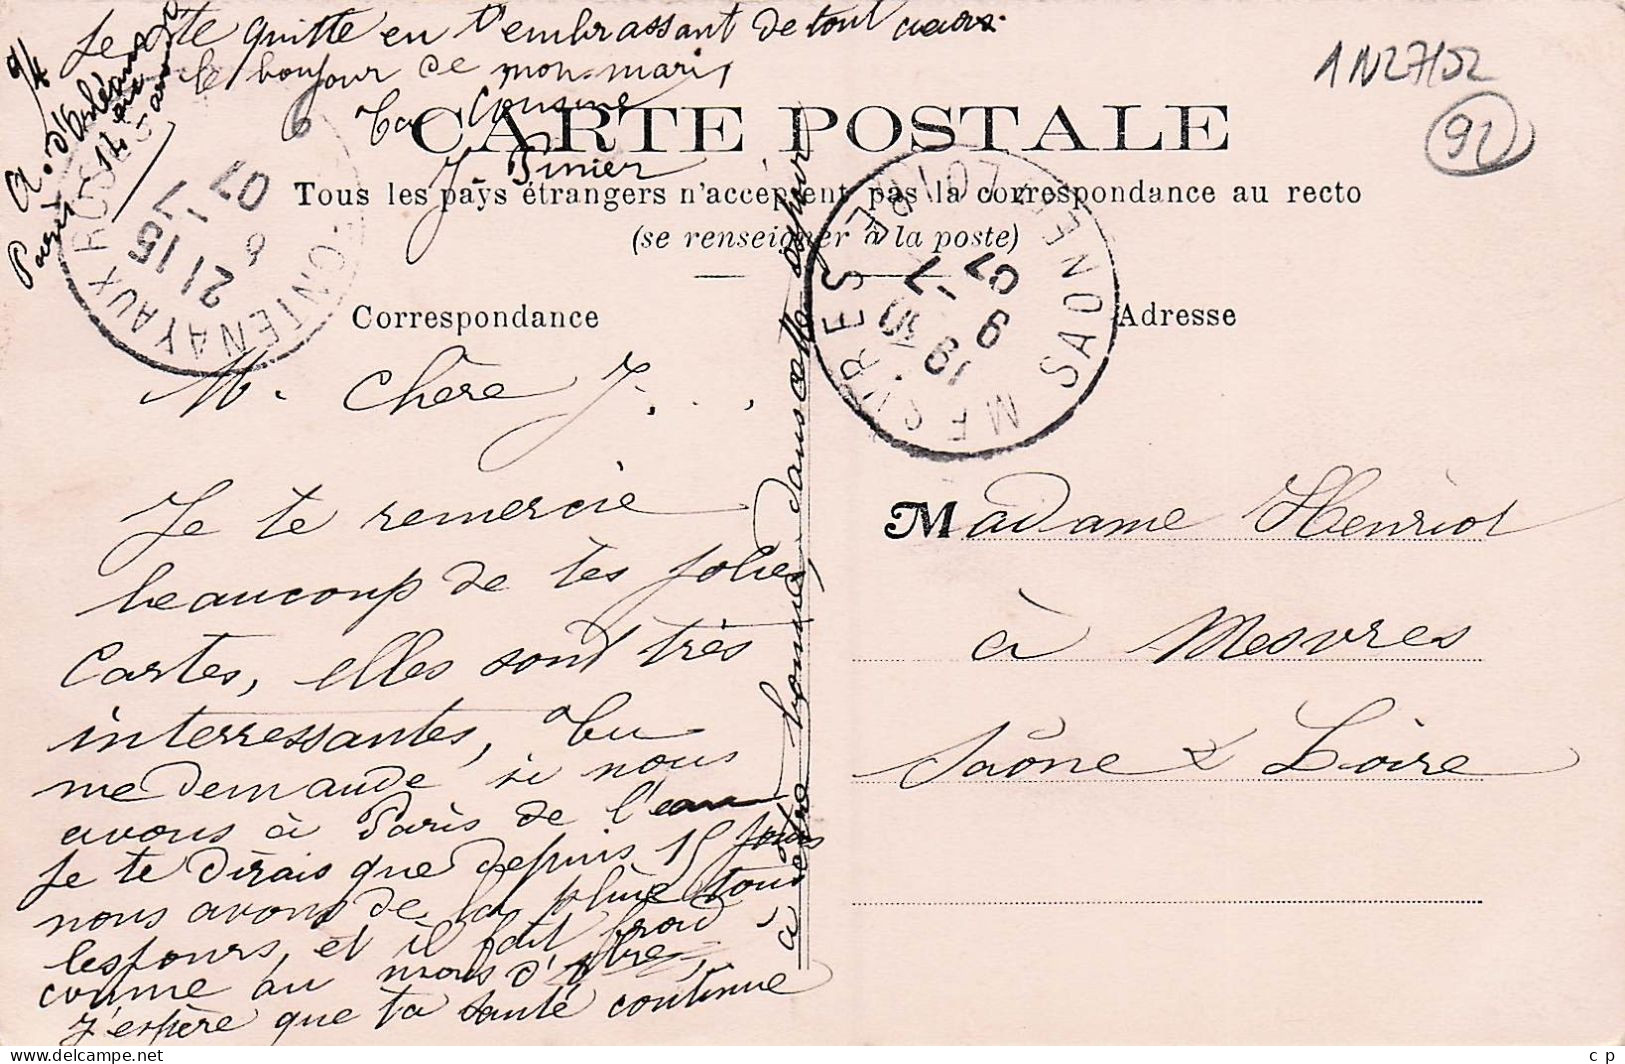 Je te quitte en t'embrassant de tout cœur
le bonjour de mon mari,
Ta Cousine
J. Pinier
1N27152
92
CARTE POSTALE
Tous les pays étrangers n'acceptent pas la correspondance au recto
(se renseigner à la poste)
Correspondance
Adresse
FONTENAY AUX ROSES
21 15
6 -7
07
MESVRES SAONE ET LOIRE
18 30
9 -7
07
M. Chère J...,
Je te remercie
beaucoup de tes jolies
Cartes, elles sont très
interressantes, Tu
me demande si nous
avons à Paris de l'eau
Je te dirais que depuis 15 jours
nous avons de la pluie tous
les jours, et il fait froid
comme au mois d'
J'espère que ta santé continue
à être bonne, dans cette espoir
Madame Henriot
à Mesvres
Saône & Loire
Paris 14
c p